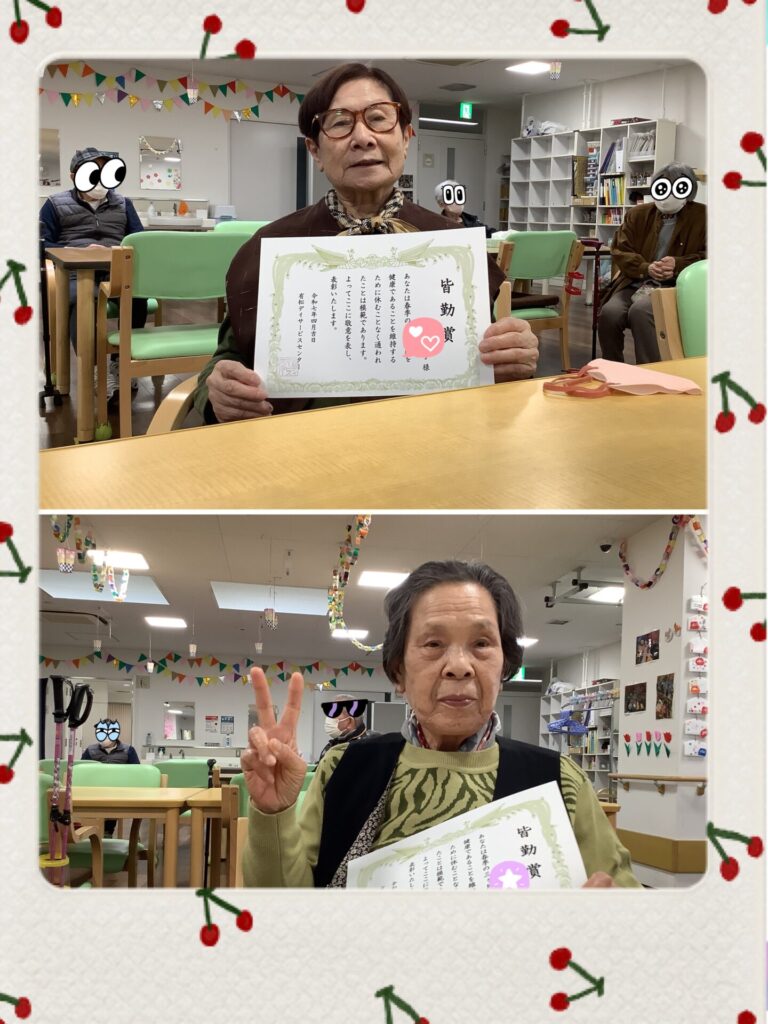 皆勤賞
様
あなたは春季の
健康であることを維持する
ために休むことなく通われ
たことは模範であります。
よってここに敬意を表し、
表彰いたします。
令和七年四月吉日
有松デイサービスセンター
皆勤賞
あなたは春季の三
健康であることを維
ために休むことな
たことは模
よってここに
表彰いた